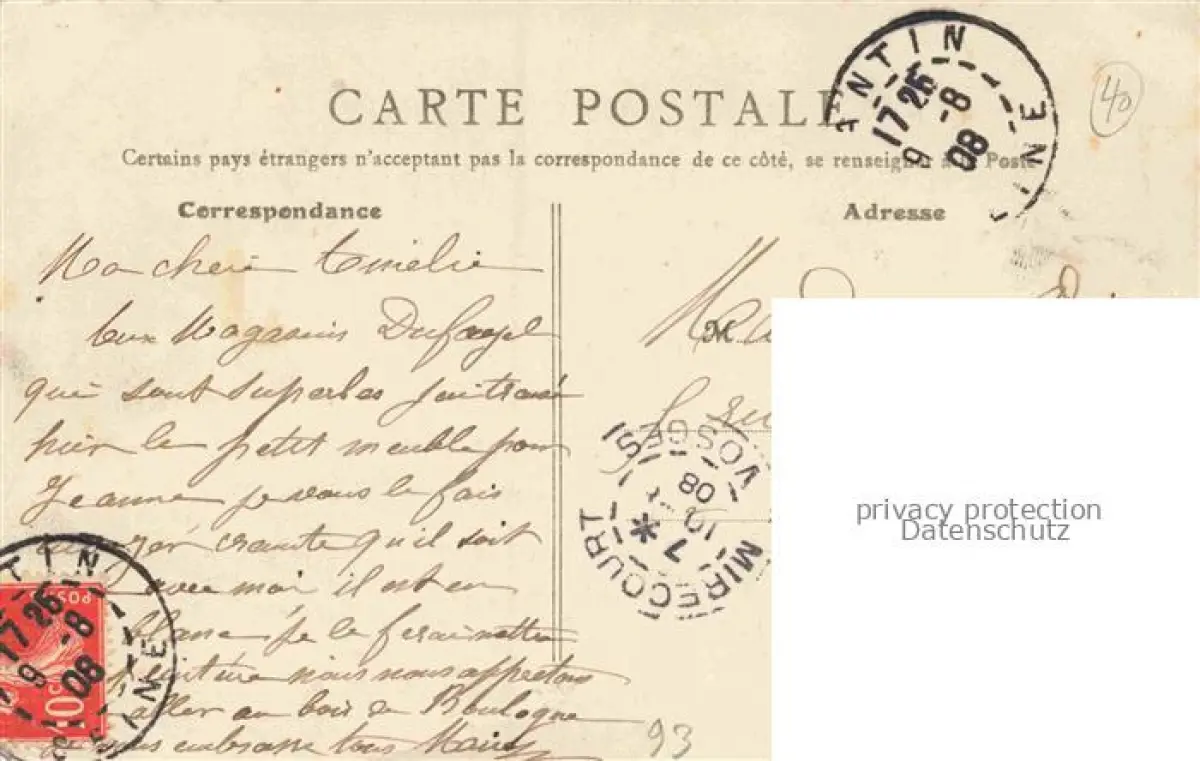 CARTE POSTALE
Certains pays étrangers n'acceptant pas la correspondance de ce côté, se renseigner à la Poste
Correspondance
Adresse
40
17 25
9 -8
08
Ma chere Amelie
Aux Magasins Dufayel
qui sont superbes j'ai trouvé
hier le petit meuble pour
Jeanne je vous le fais
crainte qu'il soit
avec moi il est en
blanc je le ferai mettre
peinture nous nous appretons
aller au bois de Boulogne
vous embrasse tous
M
MIRECOURT
VOSGES
7 *
10
08
17 25
9 -8
08
POS
10c
93
privacy protection
Datenschutz